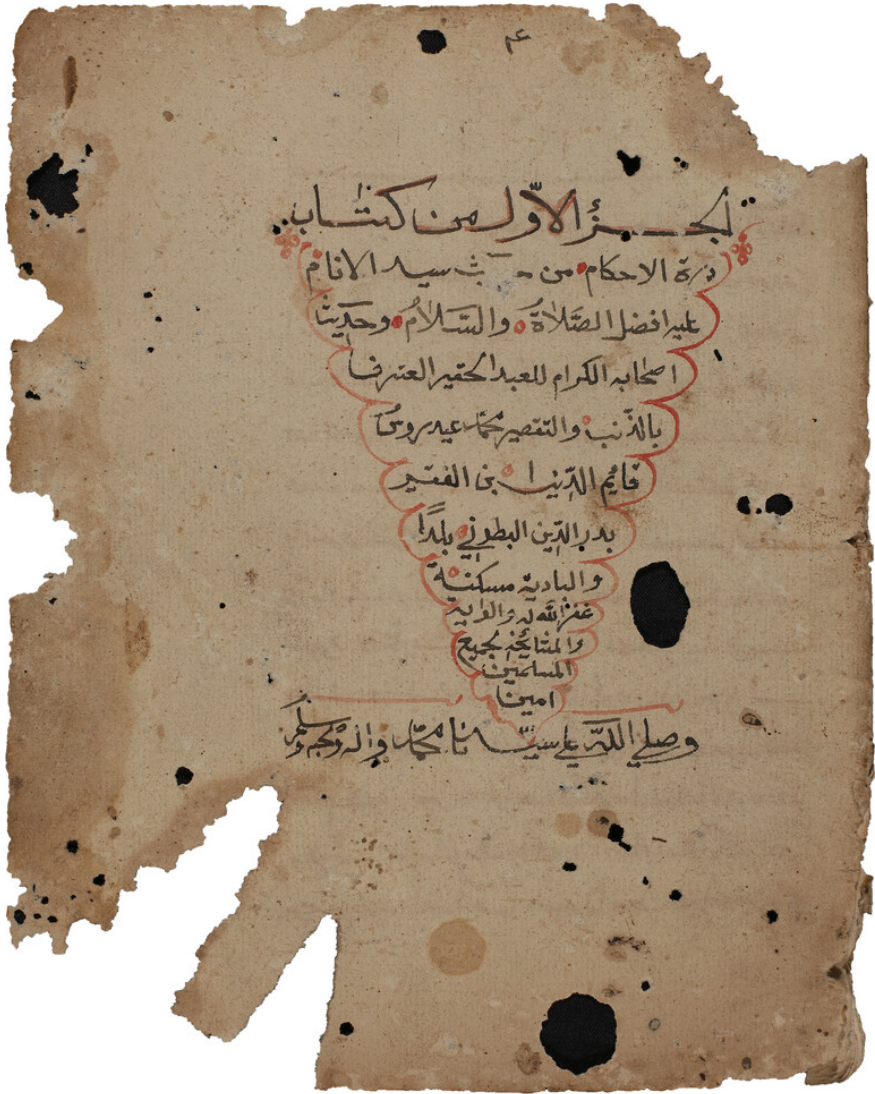 عم
الجــزؤ الاوّل من كتاب
درة الاحكام من حديث سيد الانام
عليه افضل الصّلاةُ والسّلامُ وحديث
اصحابه الكرام للعبد الحقير المعترف
بالذّنب والتقصير محمّد عيدروسُ
قايم الدّين ابن الفقير
بدر الدّين البطوني بلدًا
والبادية مسكنية
غفر الله له والوالديه
والمشايخه لجميع
المسلمين
امين
وصلي اللهُ علي سيّدنا محمّد واله وصحبه وسلم